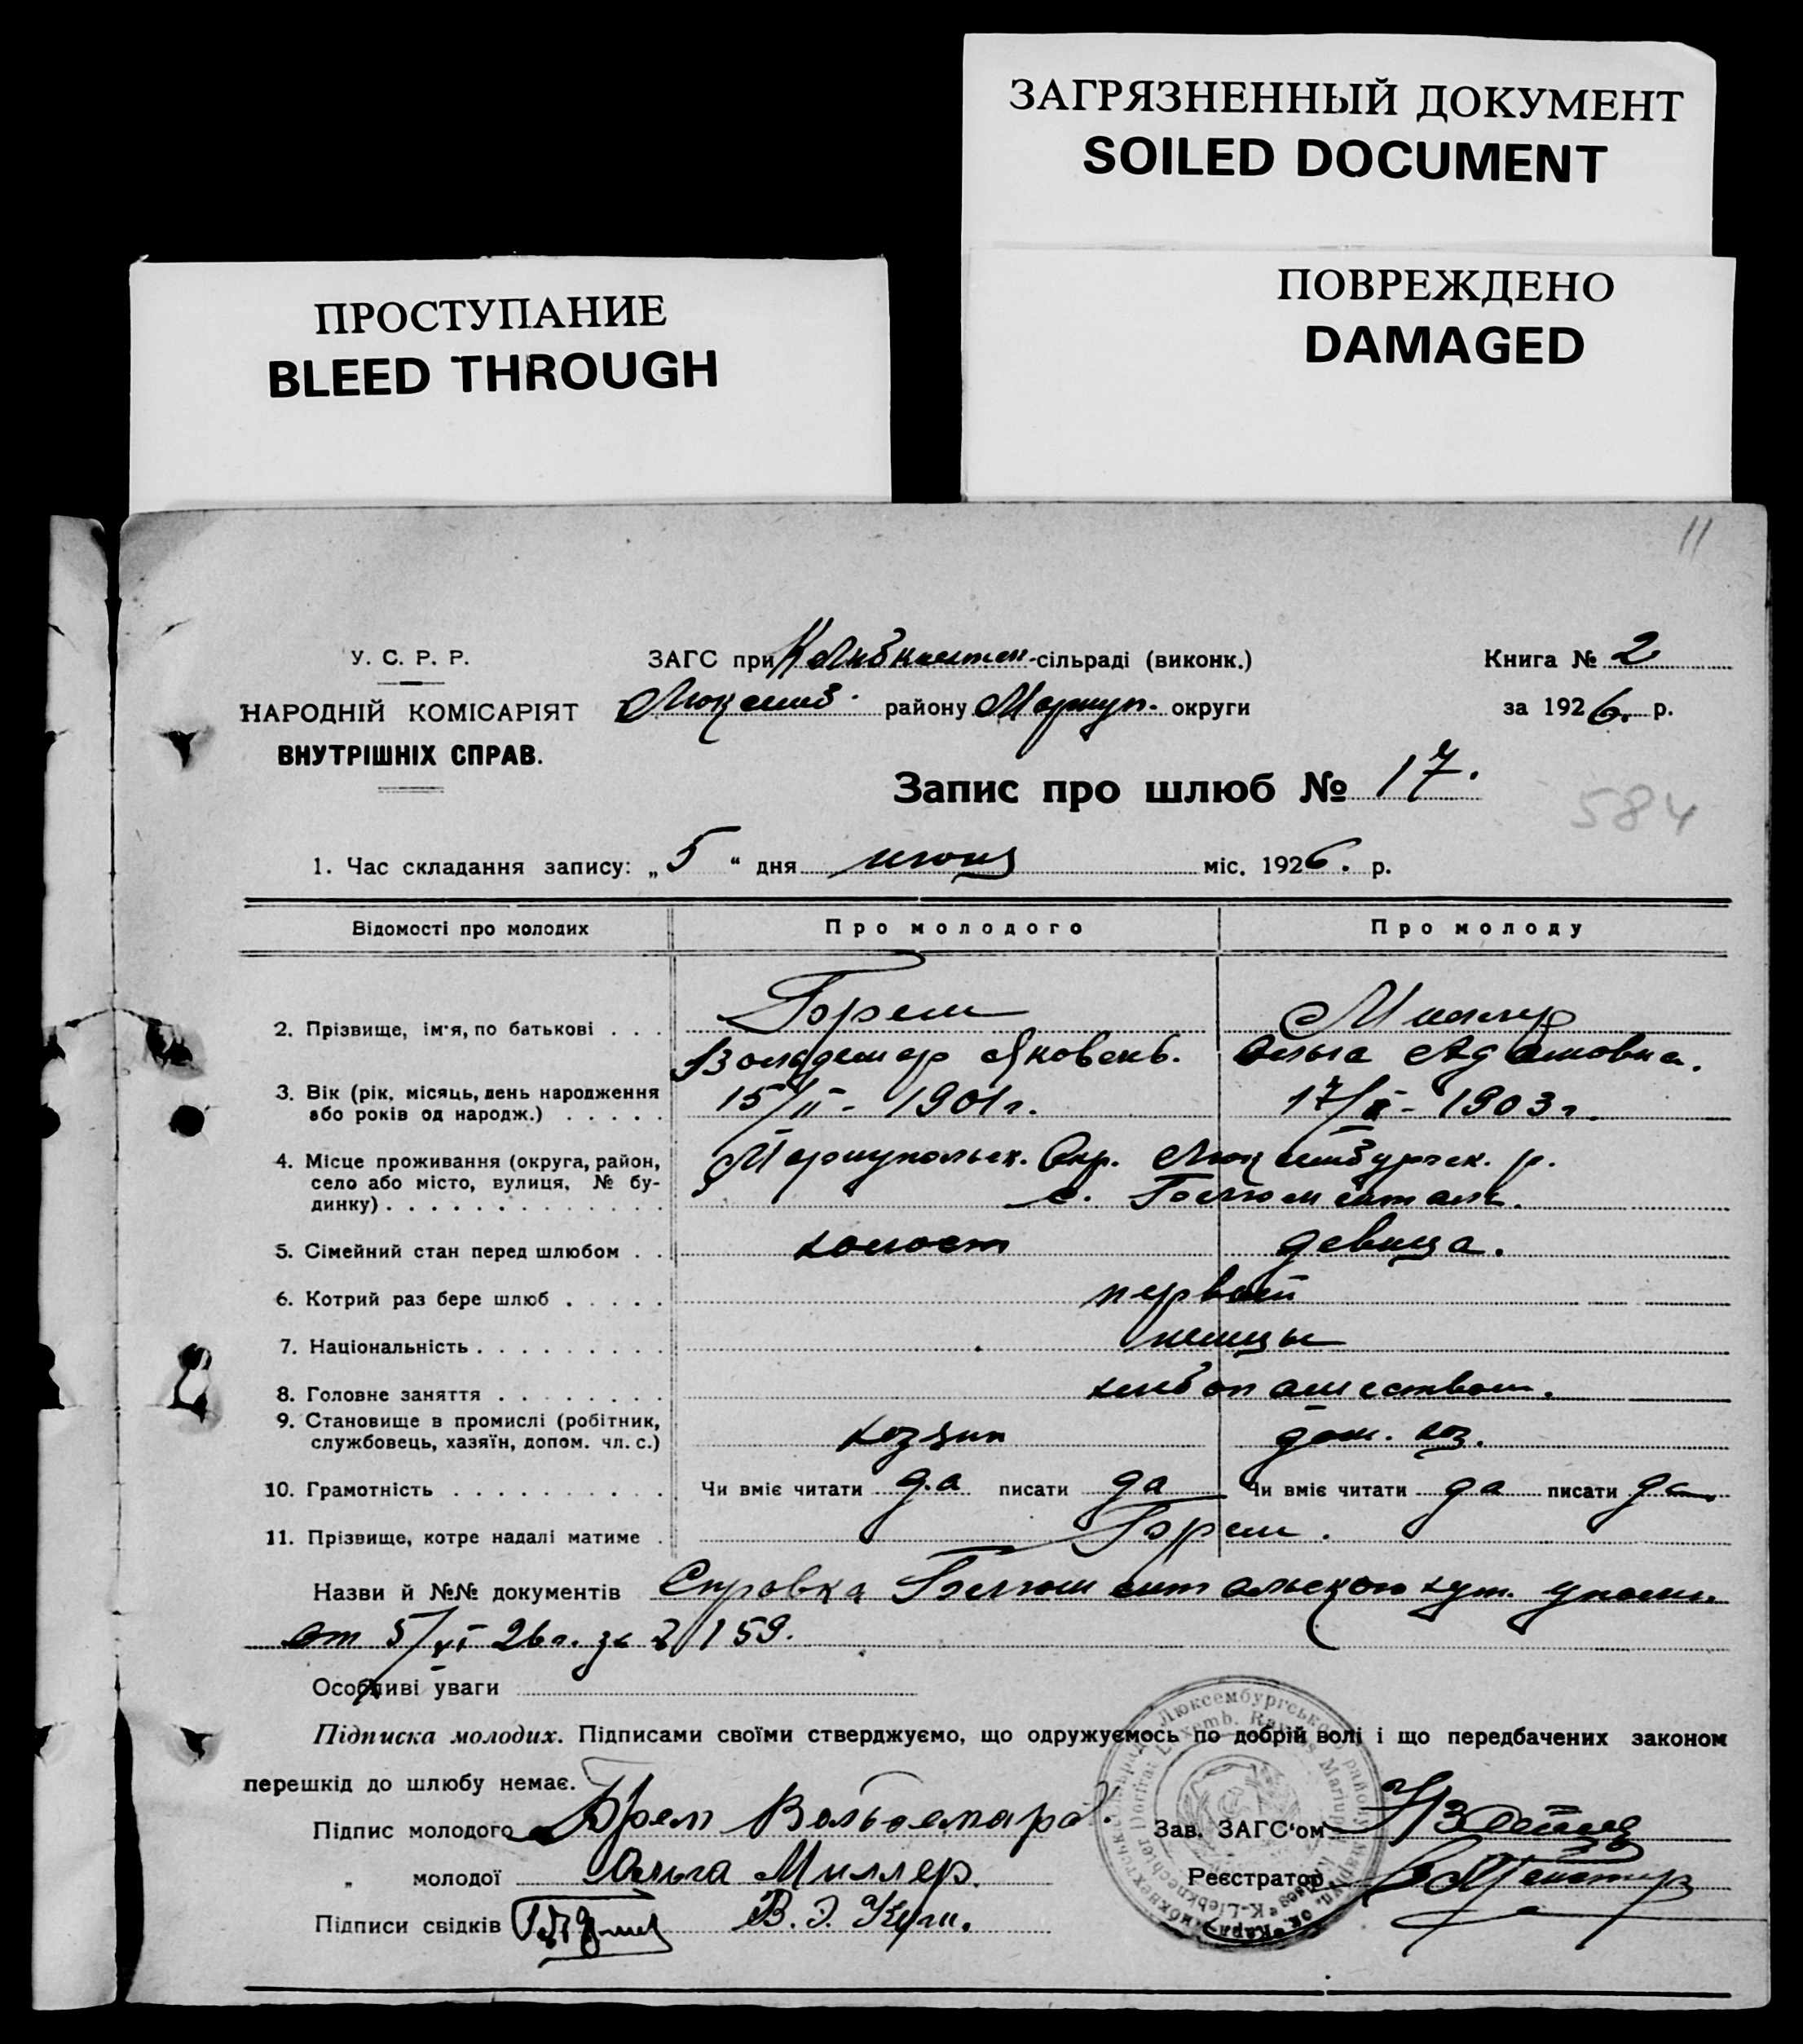 ЗАГРЯЗНЕННЫЙ ДОКУМЕНТ
SOILED DOCUMENT
ПРОСТУПАНИЕ
BLEED THROUGH
ПОВРЕЖДЕНО
DAMAGED
11
У. С. Р. Р.
НАРОДНІЙ КОМІСАРІЯТ
ВНУТРІШНІХ СПРАВ.
ЗАГС при К Либкнехтен -сільраді (виконк.)
Люксемб. району Мариуп. округи
Книга № 2
за 1926. р.
Запис про шлюб № 17.
584
1. Час складання запису: „5“ дня июня міс. 1926. р.
Відомості про молодих Про молодого Про молоду
2. Прізвище, ім'я, по батькові . . . Брем Миллер
Вольдемар Яковлев. Ольга Адамовна.
3. Вік (рік, місяць, день народження або років од народж.) . . . . . 15/II - 1901 г. 17/X - 1903 г.
4. Місце проживання (округа, район, село або місто, вулиця, № будинку) . . . . . . . . . . . . . Мариупольск. Окр. Люксембургск. р.
с. Блюменталь.
5. Сімейний стан перед шлюбом . . холост девица.
6. Котрий раз бере шлюб . . . . . первый
7. Національність . . . . . . . . . немцы
8. Головне заняття . . . . . . . . хлебопашеством.
9. Становище в промислі (робітник, службовець, хазяїн, допом. чл. с.) хозяин дом. хоз.
10. Грамотність . . . . . . . . . . Чи вміє читати да писати да Чи вміє читати да писати да
11. Прізвище, котре надалі матиме . Брем.
Назви й №№ документів Справка Блюментальского хут. уполн.
от 5/VI 26 г. за № 159.
Особливі уваги
Підписка молодих. Підписами своїми стверджуємо, що одружуємось по добрій волі і що передбачених законом
перешкід до шлюбу немає.
Підпис молодого Брем Вольдемар
Зав. ЗАГС'ом
„ молодої Ольга Миллер.
Реєстратор
Підписи свідків В. Э.